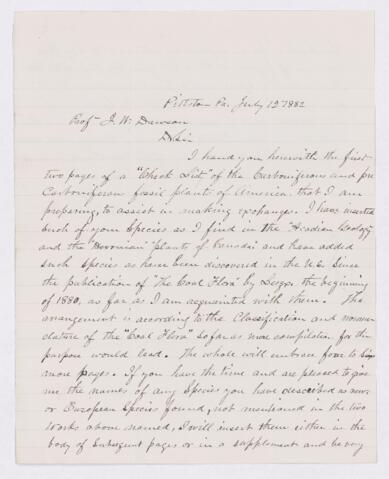 Pittston Pa. July 12 1882
Prof J. W. Dawson
D Sir
I hand you herewith the first
two pages of a "Check List" of the Carboniferous and pre
Carboniferous fossil plants of America that I am
preparing to assist in making exchanges. I have inserted
such of your Species as I find in the "Acadian Geology"
and the "Devonian" plants of Canada and have added
such Species as have been discovered in the U.S. Since
the publication of "The Coal Flora" by Lesqx the beginning
of 1880, as far as I am acquainted with them. The
arrangement is according to the Classification and nomen
clature of the "Coal Flora" So far as mere compilation for the
purpose would lead. The whole will embrace four to
more pages. If you have the time and are pleased to give
me the names of any Species you have described as new
or European Species found, not mentioned in the two
works above named, I will insert them either in the
body of Subsequent pages or in a supplement and be very